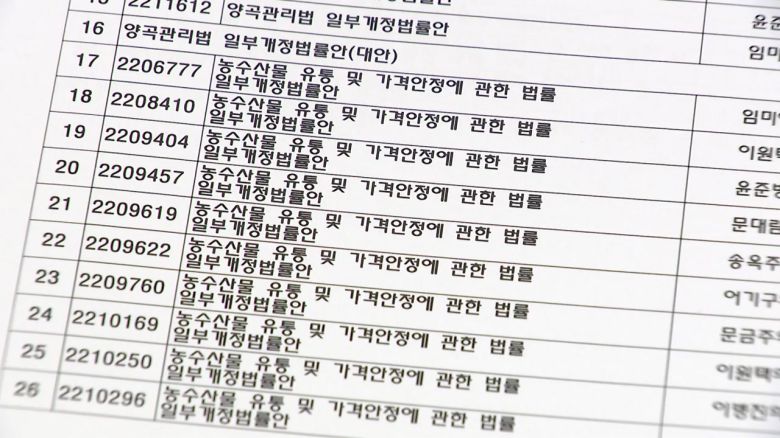 2211612 양곡관리법 일부개정법률안 윤준
16 양곡관리법 일부개정법률안(대안) 임미
17 2206777 농수산물 유통 및 가격안정에 관한 법률
일부개정법률안
18 2208410 농수산물 유통 및 가격안정에 관한 법률 임미
일부개정법률안
19 2209404 농수산물 유통 및 가격안정에 관한 법률 이원택
일부개정법률안
20 2209457 농수산물 유통 및 가격안정에 관한 법률 윤준병
일부개정법률안
21 2209619 농수산물 유통 및 가격안정에 관한 법률 문대림
일부개정법률안
22 2209622 농수산물 유통 및 가격안정에 관한 법률 송옥주
일부개정법률안
23 2209760 농수산물 유통 및 가격안정에 관한 법률 어기구
일부개정법률안
24 2210169 농수산물 유통 및 가격안정에 관한 법률 문금주
일부개정법률안
25 2210250 농수산물 유통 및 가격안정에 관한 법률 이원택의
일부개정법률안
26 2210296 농수산물 유통 및 가격안정에 관한 법률 이병진의
일부개정법률안